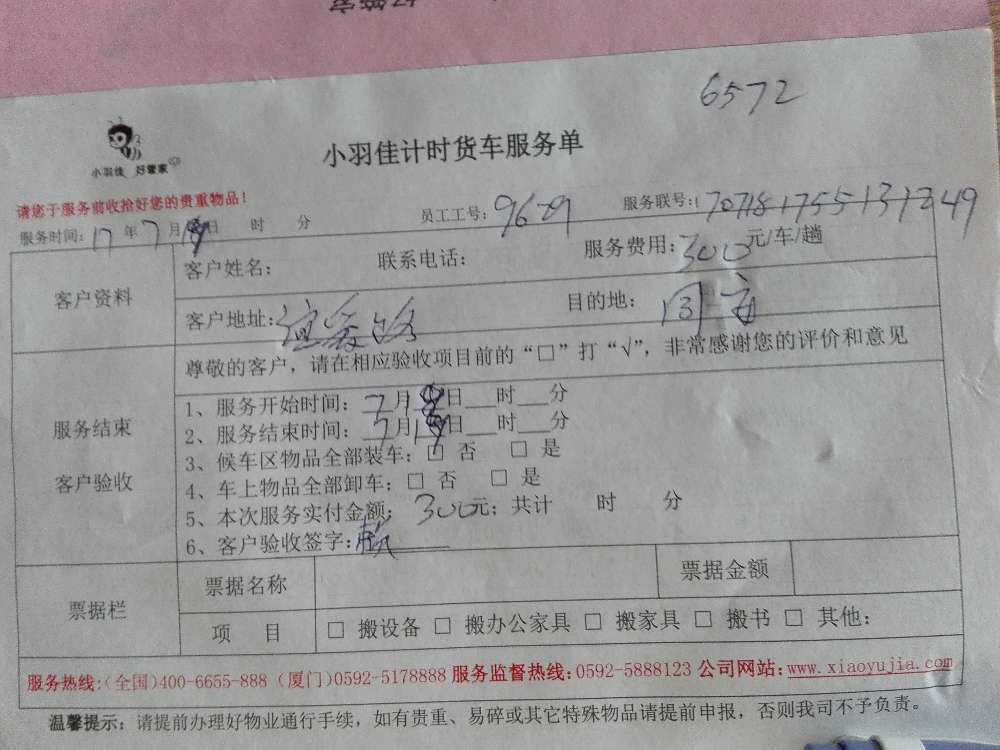 6572
小羽佳 好管家
小羽佳计时货车服务单
请您于服务前收拾好您的贵重物品！
服务时间：17年7月日 时 分 员工工号：9629 服务联号：
客户资料
客户姓名： 联系电话： 服务费用：300元/车/趟
客户地址： 路 目的地：同安
服务结束
客户验收
尊敬的客户，请在相应验收项目前的“□”打“√”，非常感谢您的评价和意见
1、服务开始时间：7月日___时___分
2、服务结束时间：7月日___时___分
3、候车区物品全部装车：□ 否 □ 是
4、车上物品全部卸车：□ 否 □ 是
5、本次服务实付金额：300元；共计 时 分
6、客户验收签字：
票据栏
票据名称 票据金额
项 目 □ 搬设备 □ 搬办公家具 □ 搬家具 □ 搬书 □ 其他：
服务热线：（全国）400-6655-888（厦门）0592-5178888 服务监督热线：0592-5888123 公司网站：www.xiaoyujia.com
温馨提示：请提前办理好物业通行手续，如有贵重、易碎或其它特殊物品请提前申报，否则我司不予负责。